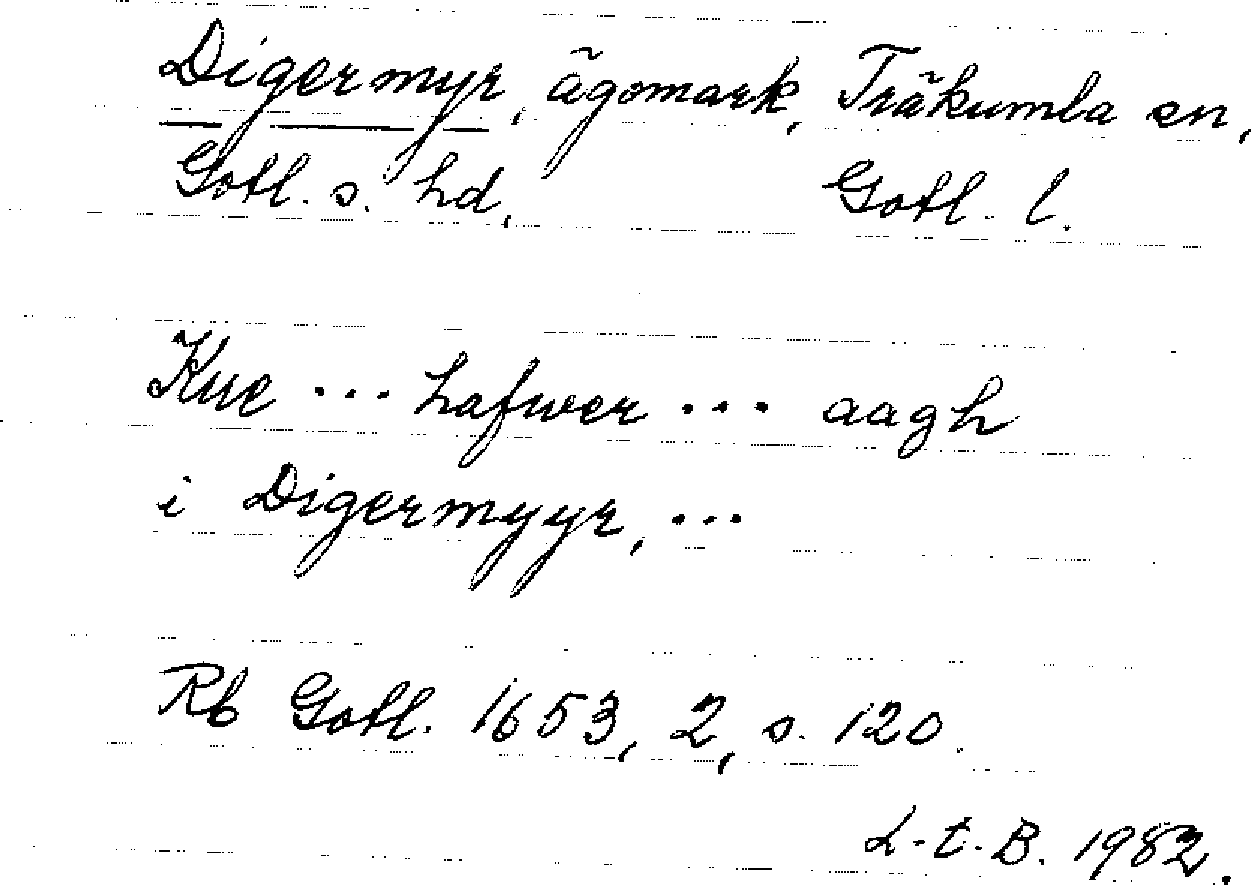 Digermyr, ägomark, Träkumla sn,
Gotl. s. hd, Gotl. l.
Kue ... hafwer ... aagh
i Digermyyr, ...
Rb Gotl. 1653, 2, s. 120.
L-t. B. 1982.